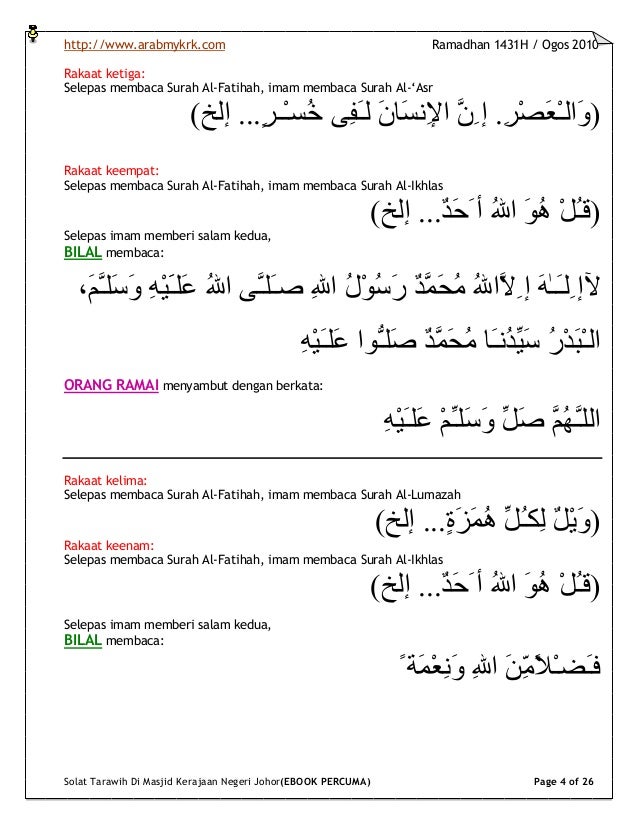 http://www.arabmykrk.com Ramadhan 1431H / Ogos 2010
Rakaat ketiga:
Selepas membaca Surah Al-Fatihah, imam membaca Surah Al-‘Asr
(وَالْـعَصْرِ. إِنَّ الإنسَانَ لَـفِى خُسْـرٍ... إلخ)
Rakaat keempat:
Selepas membaca Surah Al-Fatihah, imam membaca Surah Al-Ikhlas
(قُـلْ هُوَ اللهُ أَحَدٌ... إلخ)
Selepas imam memberi salam kedua,
BILAL membaca:
لآإِلَـٰـهَ إِلاَّاللهُ مُحَمَّدٌ رَسُوْلُ اللهِ صَـلَّـى اللهُ عَلَـيْهِ وَسَلَّـمَ،
الْـبَدْرُ سَيِّدُنَـا مُحَمَّدٌ صَلُّـوا عَلَـيْهِ
ORANG RAMAI menyambut dengan berkata:
اللَّـهُمَّ صَلِّ وَسَلِّـمْ عَلَـيْهِ
Rakaat kelima:
Selepas membaca Surah Al-Fatihah, imam membaca Surah Al-Lumazah
(وَيْلٌ لِكُـلِّ هُمَزَةٍ... إلخ)
Rakaat keenam:
Selepas membaca Surah Al-Fatihah, imam membaca Surah Al-Ikhlas
(قُـلْ هُوَ اللهُ أَحَدٌ... إلخ)
Selepas imam memberi salam kedua,
BILAL membaca:
فَـضْـلاًمِّنَ اللهِ وَنِعْمَةً
Solat Tarawih Di Masjid Kerajaan Negeri Johor(EBOOK PERCUMA) Page 4 of 26